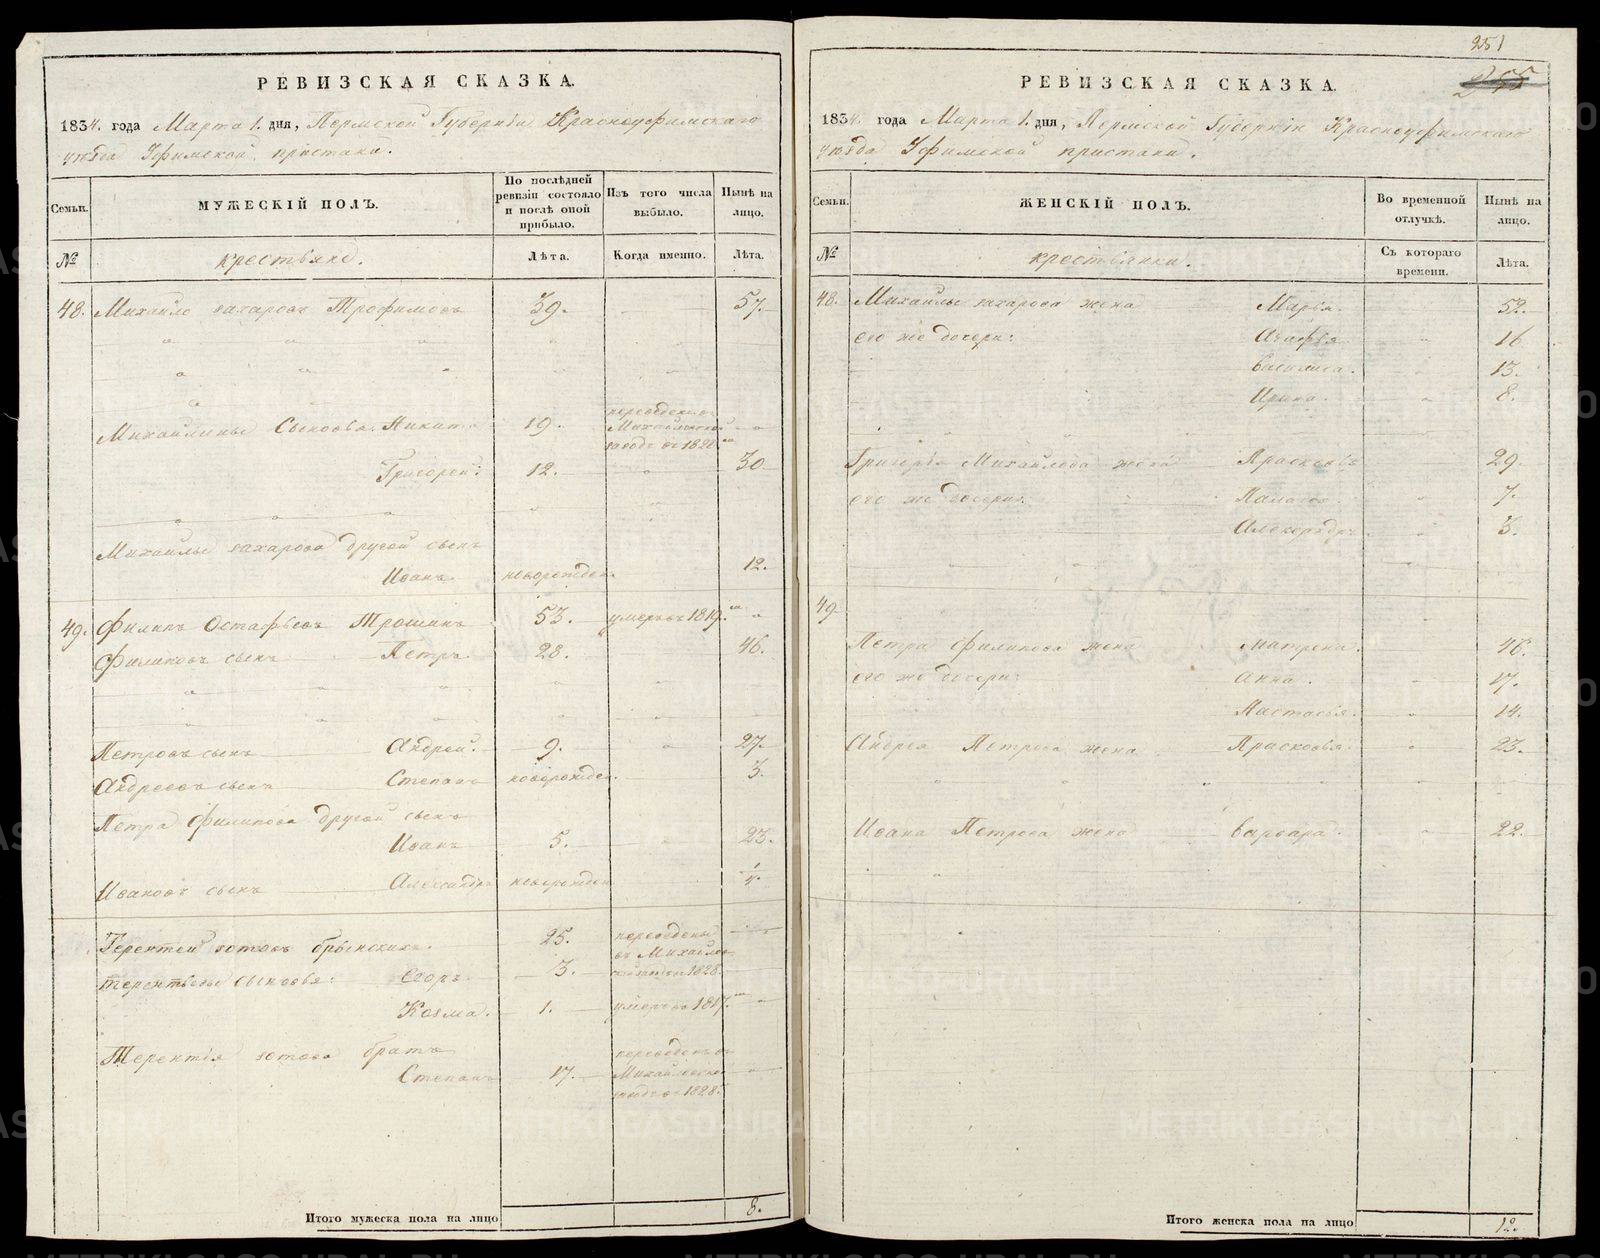 РЕВИЗСКАЯ СКАЗКА.
1834. года Марта 1. дня, Пермской Губерніи Красноуфимскаго
уѣзда Уфимской пристани.
Семьи.
МУЖЕСКІЙ ПОЛЪ.
По послѣдней ревизіи состояло и послѣ оной прибыло.
Изъ того числа выбыло.
Нынѣ на лицо.
№
крестьяне.
Лѣта.
Когда именно.
Лѣта.
48. Михайло захаровъ Трофимовъ 39. 57.
Михайлины Сыновья Никита 19. переведенъ въ Михайловской заводъ въ 1828
Григорей: 12. 30
Михайлы захарова другой сынъ
Иванъ новорожден. 12.
49. Филипъ Остафьевъ Трошинъ 53. умеръ въ 1819.
Филиповъ сынъ Петръ 28. 46.
Петровъ сынъ Андрей. 9. 27.
Андреевъ сынъ Степанъ новорожден. 3.
Петра Филипова другой сынъ
Иванъ 5. 23.
Ивановъ сынъ Александръ новорожден
Терентей зотовъ 25. переведены въ Михайлов
терентьевы сыновья: Егоръ 3. 1828.
Козма. 1. умеръ въ 1817.
Терентія зотова братъ
Степанъ 17. переведенъ въ Михайловской заводъ въ 1828.
Итого мужеска пола на лицо 8.
251
255
РЕВИЗСКАЯ СКАЗКА.
1834. года Марта 1. дня, Пермской Губерніи Красноуфимскаго
уѣзда Уфимской пристани.
Семьи.
ЖЕНСКІЙ ПОЛЪ.
Во временной отлучкѣ.
Нынѣ на лицо.
№
крестьянки.
Съ котораго времени.
Лѣта.
48. Михайлы захарова жена Марья. 52.
его же дочери: Агафья 16
Василиса. 13.
Ирина. 8.
Григорія Михайлова жена Прасковья 29.
его же дочери: Палагея 7.
Александра 3.
49.
Петра Филипова жена Матрена. 46.
его же дочери: Анна. 17.
Настасья. 14.
Андрея Петрова жена Прасковья 23.
Ивана Петрова жена Варвара. 22.
Итого женска пола на лицо 12.
METRIKI.GASO-URAL.RU